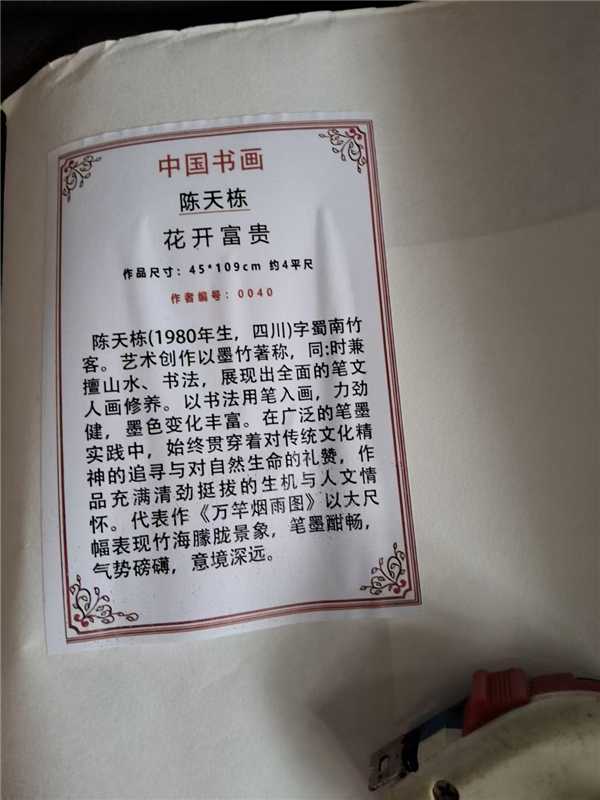 中国书画
陈天栋
花开富贵
作品尺寸：45*109cm 约4平尺
作者编号：0040
陈天栋(1980年生，四川)字蜀南竹
客。艺术创作以墨竹著称，同:时兼
擅山水、书法，展现出全面的笔文
人画修养。以书法用笔入画，力劲
健，墨色变化丰富。在广泛的笔墨
实践中，始终贯穿着对传统文化精
神的追寻与对自然生命的礼赞，作
品充满清劲挺拔的生机与人文情
怀。代表作《万竿烟雨图》以大尺
幅表现竹海朦胧景象，笔墨酣畅，
气势磅礴，意境深远。